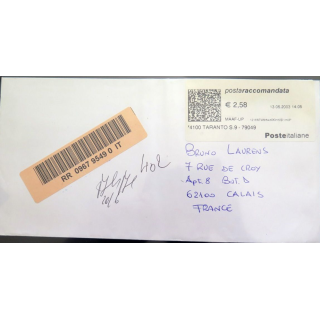 postaraccomandata
€ 2,58
74100 TARANTO S.9 - 79049
Posteitaliane
RR 0967 9549 0 IT
402
BRUNO LAURENS
7 RUE DE CROY
APT.8 BAT.D
62100 CALAIS
FRANCE